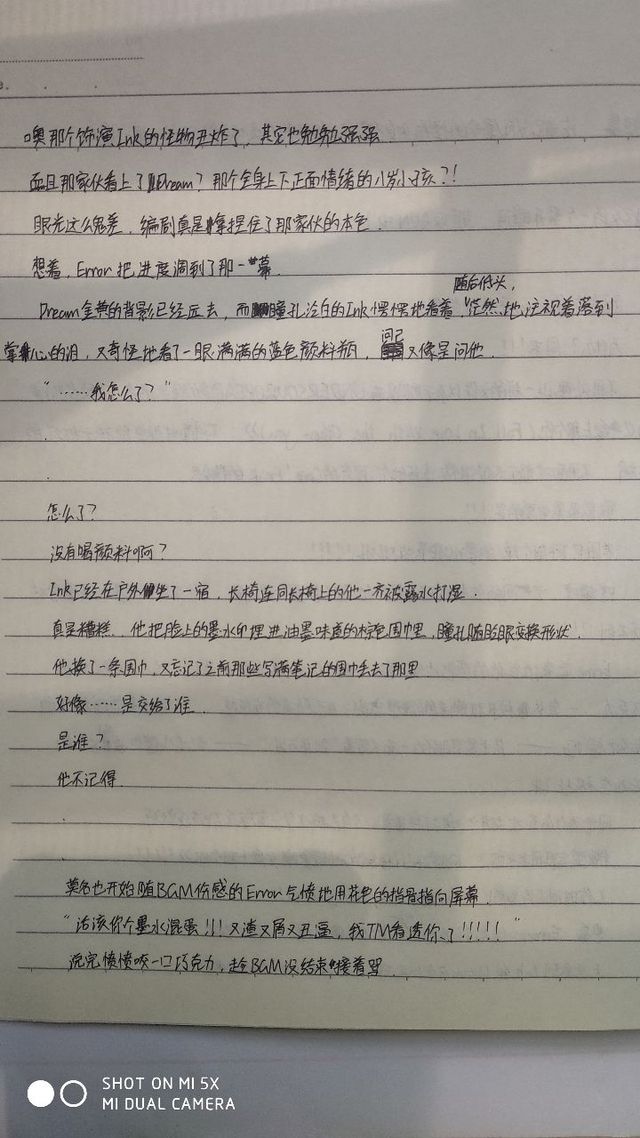 噢那个饰演Ink的怪物丑炸了，其它也勉勉强强
而且那家伙看上了Dream？那个全身上下正面情绪的八岁小孩？！
眼光这么鬼差，编剧真是拿捏住了那家伙的本色.
想着，Error把进度调到了那一幕.
随后低头，
Dream金黄的背影已经远去，而瞳孔泛白的Ink愣愣地看着，茫然地注视着落到
掌心的泪，又奇怪地看了一眼满满的蓝色颜料瓶，问己又像是问他.
“……我怎么了？”
怎么了？
没有喝颜料啊？
Ink已经在户外坐了一宿，长椅连同长椅上的他一齐被露水打湿.
真是糟糕.他把脸上的墨水印埋进油墨味道的棕色围巾里，瞳孔随眨眼变换形状.
他换了一条围巾，又忘记了之前那些写满笔记的围巾丢去了那里.
好像……是交给了谁.
是谁？
他不记得.
莫名也开始随BGM伤感的Error气愤地用花色的指骨指向屏幕.
“活该你个墨水混蛋！！！又渣又屑又丑逼，我TM看透你了！！！！！”
说完愤愤咬一口巧克力，趁BGM没结束接着骂.
SHOT ON MI 5X
MI DUAL CAMERA